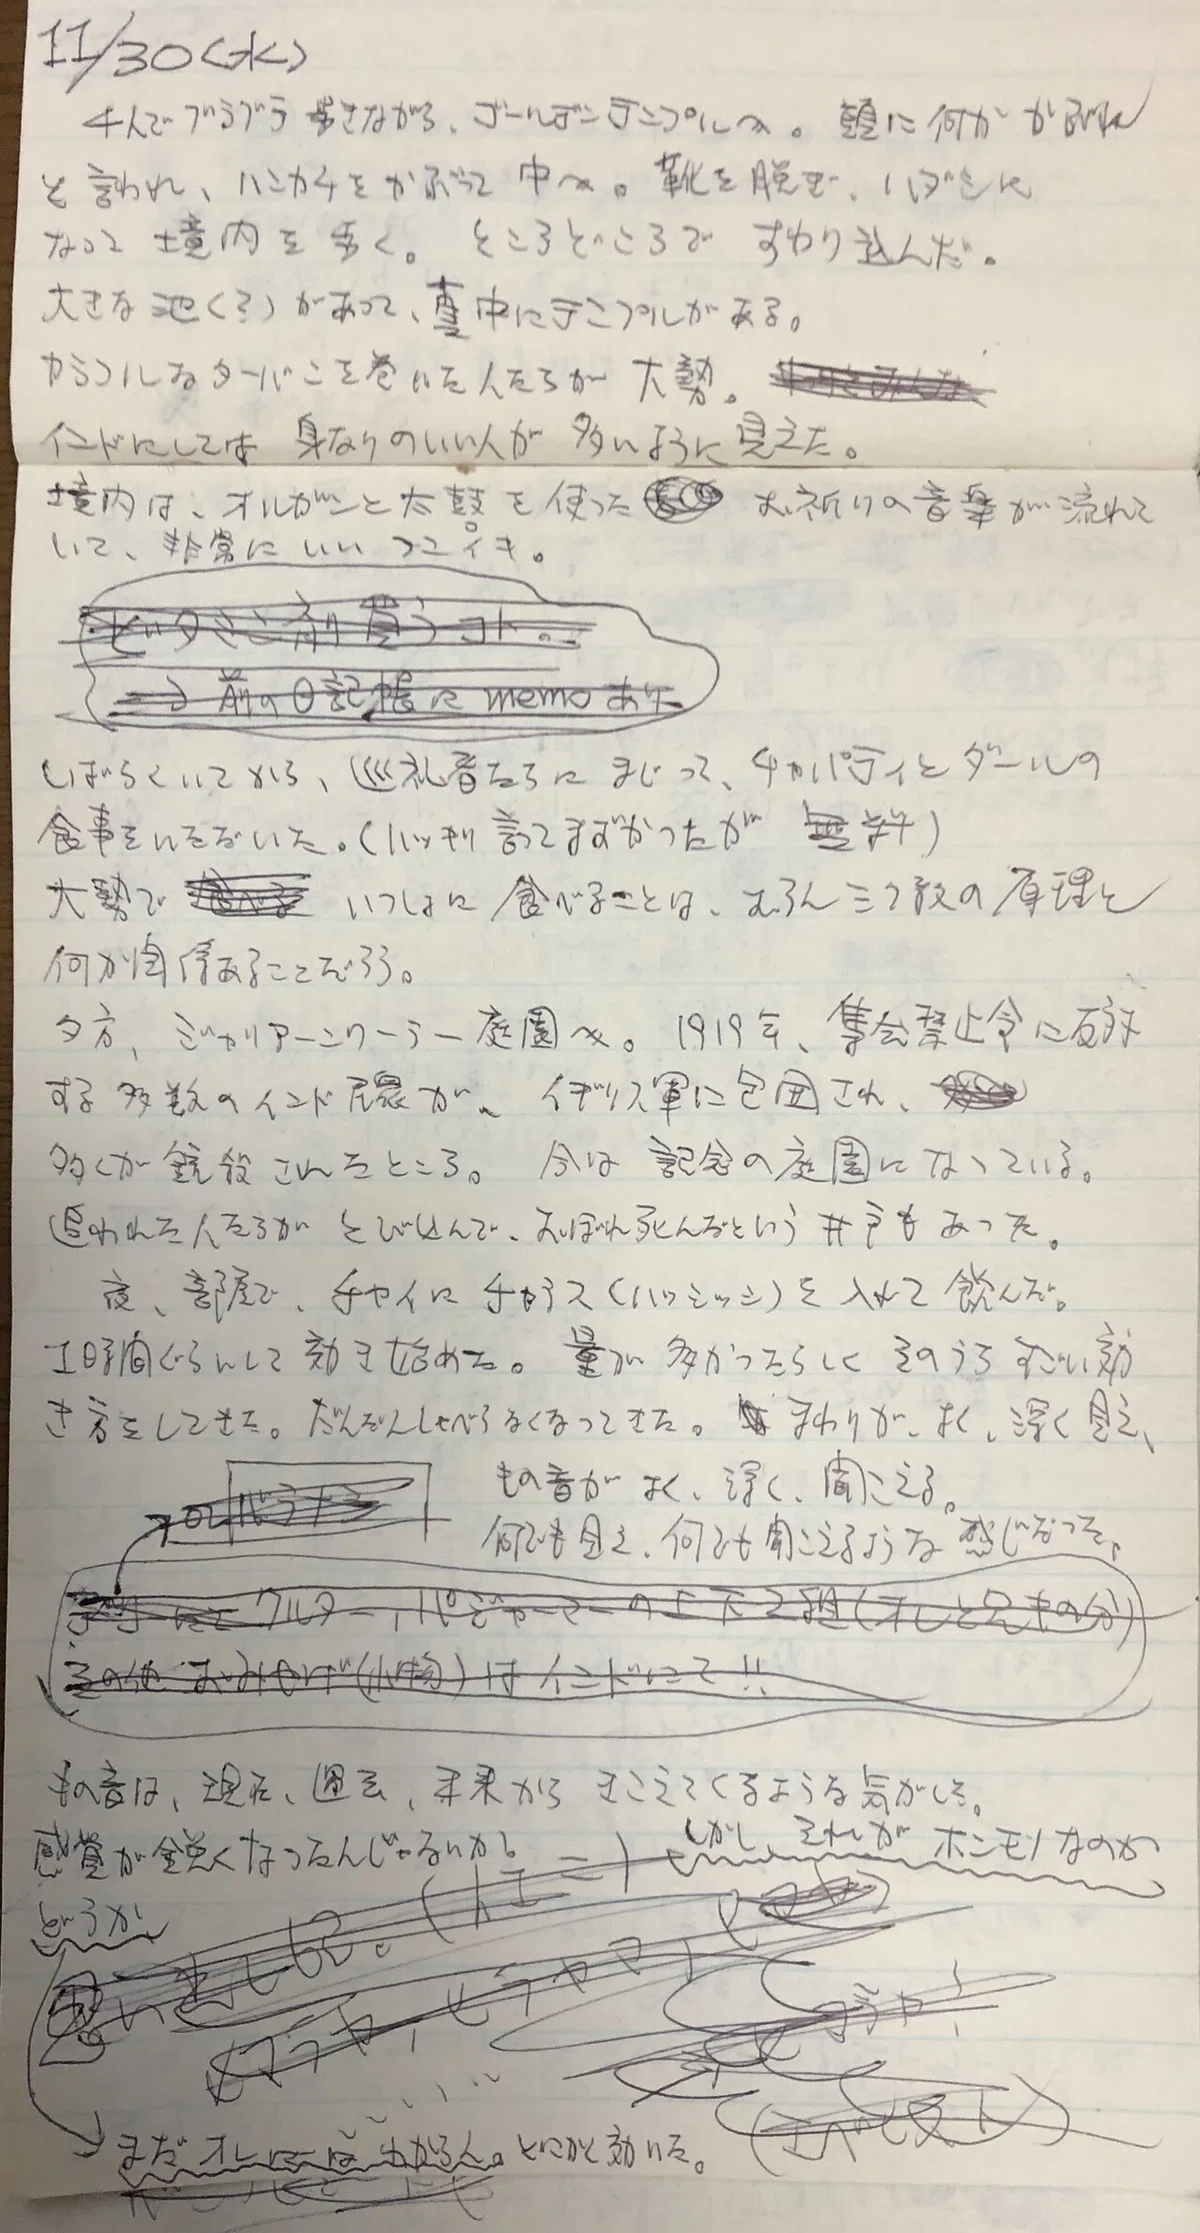 11/30(水)
4人でブラブラ歩きながら、ゴールデンテンプルへ。頭に何かかぶれ
と言われ、ハンカチをかぶって中へ。靴を脱ぎ、ハダシに
なって境内を歩く。ところどころですわり込んだ。
大きな池(?)があって、真中にテンプルがある。
カラフルなターバンを巻いた人たちが大勢。
インドにしては身なりのいい人が多いように見えた。
境内は、オルガンと太鼓を使ったお祈りの音楽が流れて
いて、非常にいいフンイキ。
ビタミン剤買うコト。
→前の日記帳にmemoあり
しばらくいてから、巡礼者たちにまじって、チャパティとダールの
食事をいただいた。(ハッキリ言ってまずかったが無料)
大勢で食べるいっしょに食べることは、むろんシク教の原理と
何か関係あることだろう。
夕方、ジャリアーンワーラー庭園へ。1919年、集会禁止令に反対
する多数のインド民衆が、イギリス軍に包囲され、
多くが銃殺されたところ。今は記念の庭園になっている。
追われた人たちがとび込んで、おぼれ死んだという井戸もあった。
夜、部屋で、チャイにチャラス(ハッシッシ)を入れて飲んだ。
1時間ぐらいして効き始めた。量が多かったらしくそのうちすごい効
き方をしてきた。だんだんしゃべらなくなってきた。まわりが、よく、深く見え、
もの音がよく、深く、聞こえる。
何でも見え、何でも聞こえるような感じだった。
orバラナシ
にてクルター、パジャーマーの上下2組(オレと兄キの分)
その他おみやげ(小物)はインドにて!!
もの音は、現在、過去、未来からきこえてくるような気がした。
感覚が鋭くなったんじゃないか?しかし、それがホンモノなのか
どうか
思い出した。
ヒマラヤ、
まだオレにはわからん。とにかく効いた。